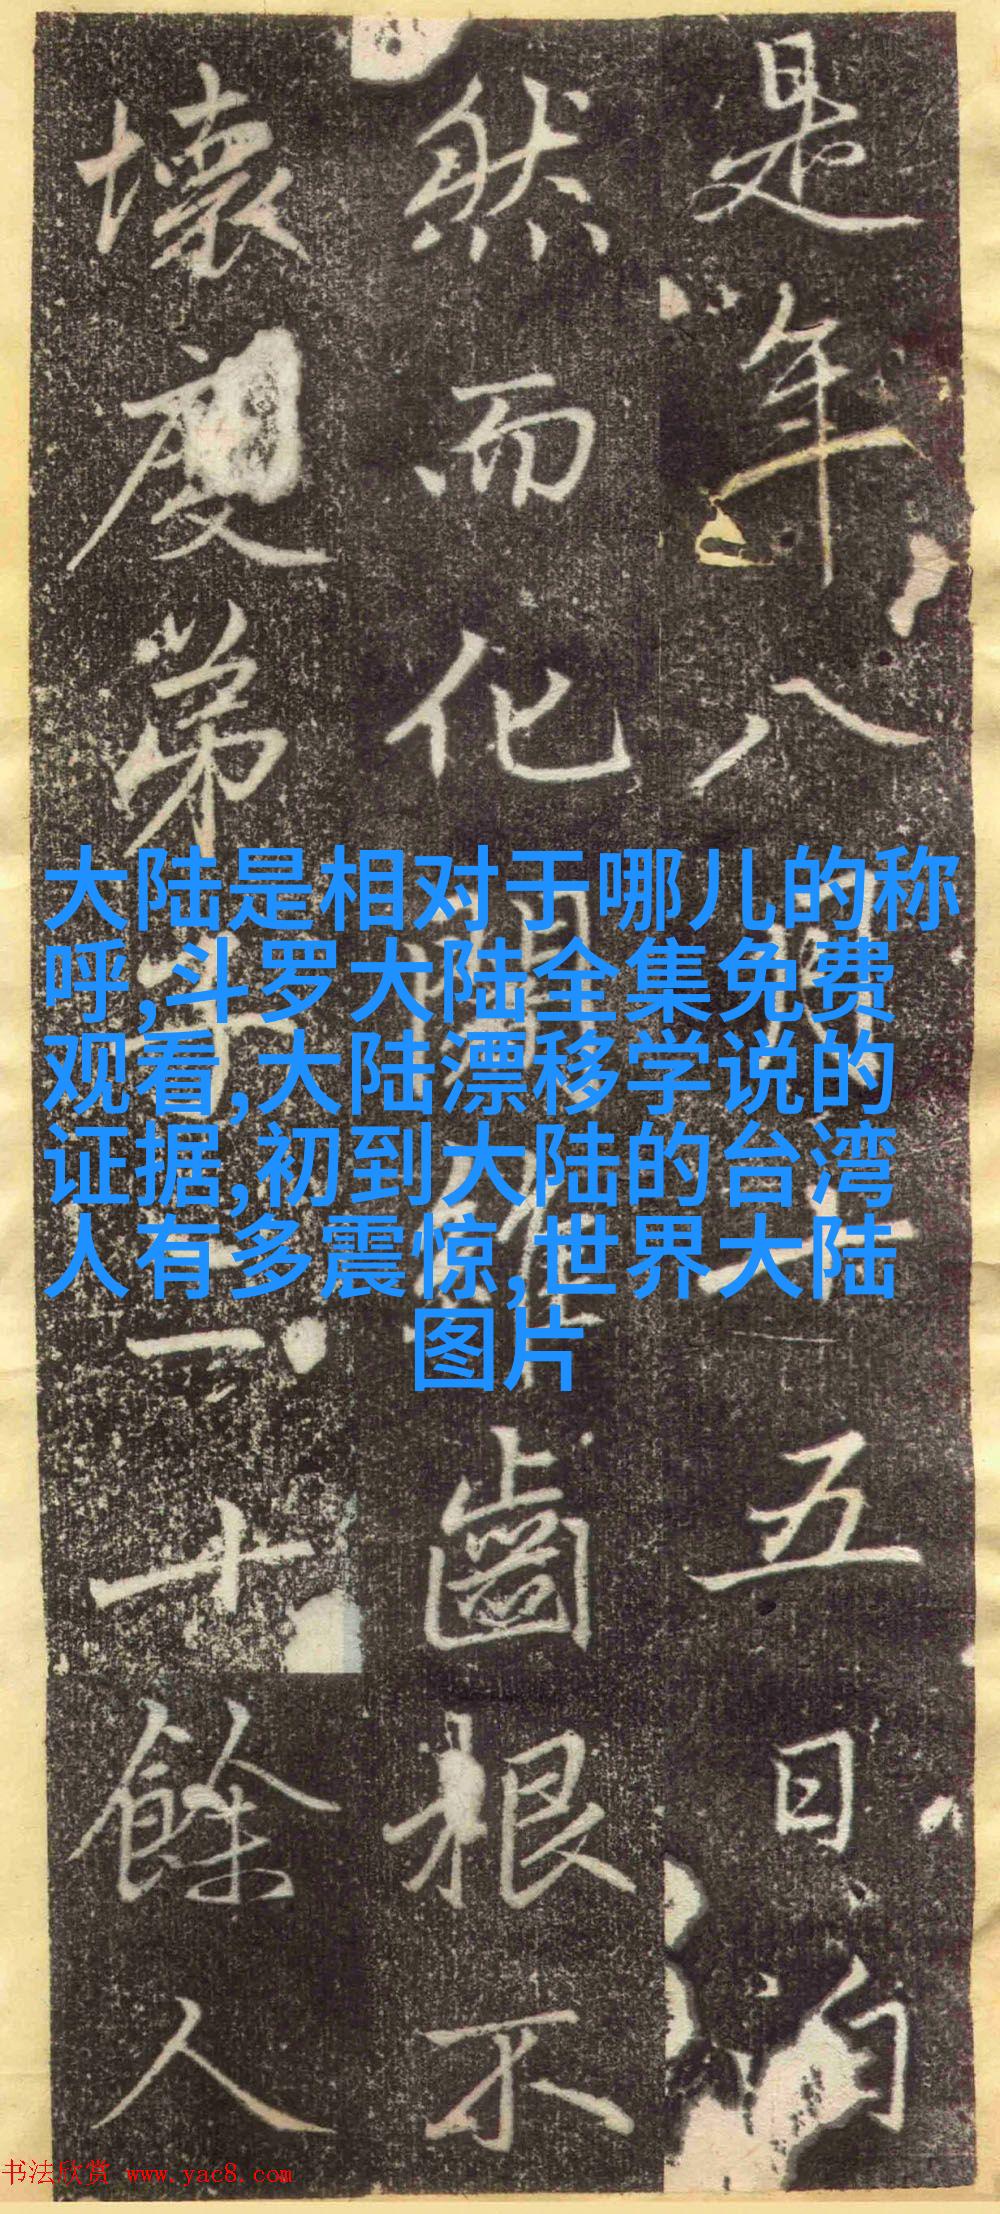 是年八
五日
然而化
齒根不
壞度弟
十餘人
大陆是相对于哪儿的称
呼,斗罗大陆全集免费
观看,大陆漂移学说的
证据,初到大陆的台湾
人有多震惊,世界大陆
图片
书法欣赏 www.yac8.com